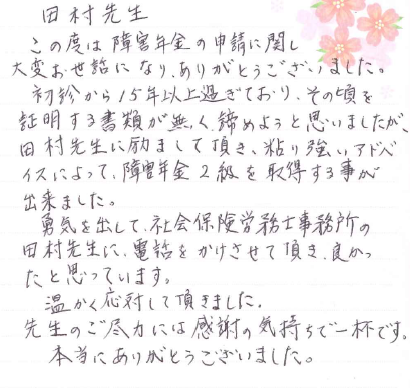 田村先生
この度は障害年金の申請に関し
大変お世話になり、ありがとうございました。
初診から15年以上過ぎており、その頃を
証明する書類が無く、諦めようと思いましたが、
田村先生に励まして頂き、粘り強いアドバ
イスによって、障害年金2級を取得する事が
出来ました。
勇気を出して、社会保険労務士事務所の
田村先生に、電話をかけさせて頂き、良かっ
たと思っています。
温かく応対して頂きました。
先生のご尽力には感謝の気持ちで一杯です。
本当にありがとうございました。